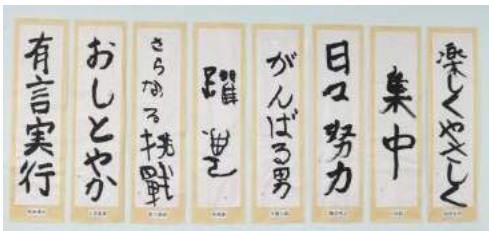 楽しくやさしく
集中
日々努力
がんばる男
躍進
さらなる挑戦
おしとやか
有言実行